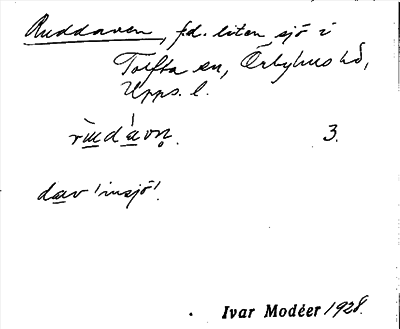 Ruddaven, fd. liten sjö i
Tolfta sn, Örbyhus hd,
Upps. l.
rùud ávn̥. 3.
dav 'insjö'.
Ivar Modéer 1928.